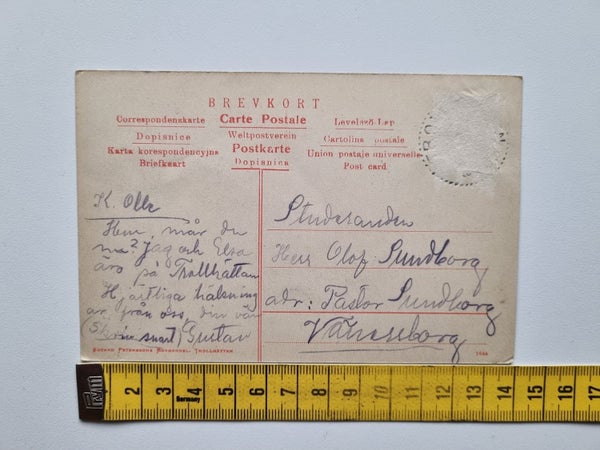 BREVKORT
Correspondenskarte Carte Postale Levelező-Lap
Dopisnice Weltpostverein Cartolina postale
Karta korespondencyjna Postkarte Union postale universelle
Briefkaart Dopisnica Post card
K. Olle
Hem, mår du
nu? Jag och Elsa
äro på Trollhättan
Hjärtliga hälsning
ar från oss, din vän
(Skriv snart) Gustav
Studeranden
Herr Olof Sundborg
adr: Pastor Sundborg
Vänersborg
Trollhättan
1644
2 3 4 Germany 5 6 7 8 9 10 11 12 13 14 15 16 17